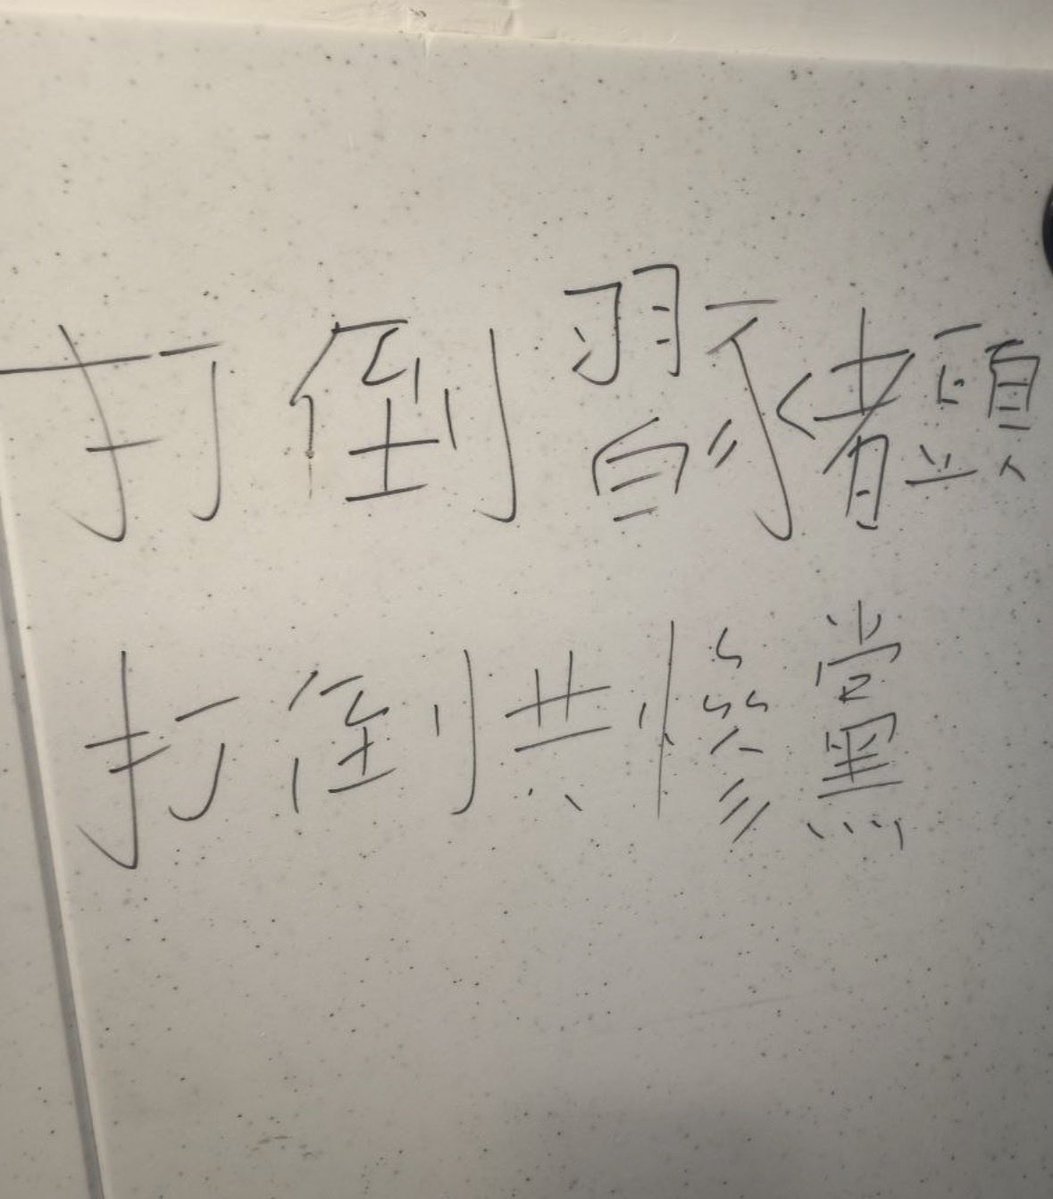 打倒習豬頭
打倒共慘黨